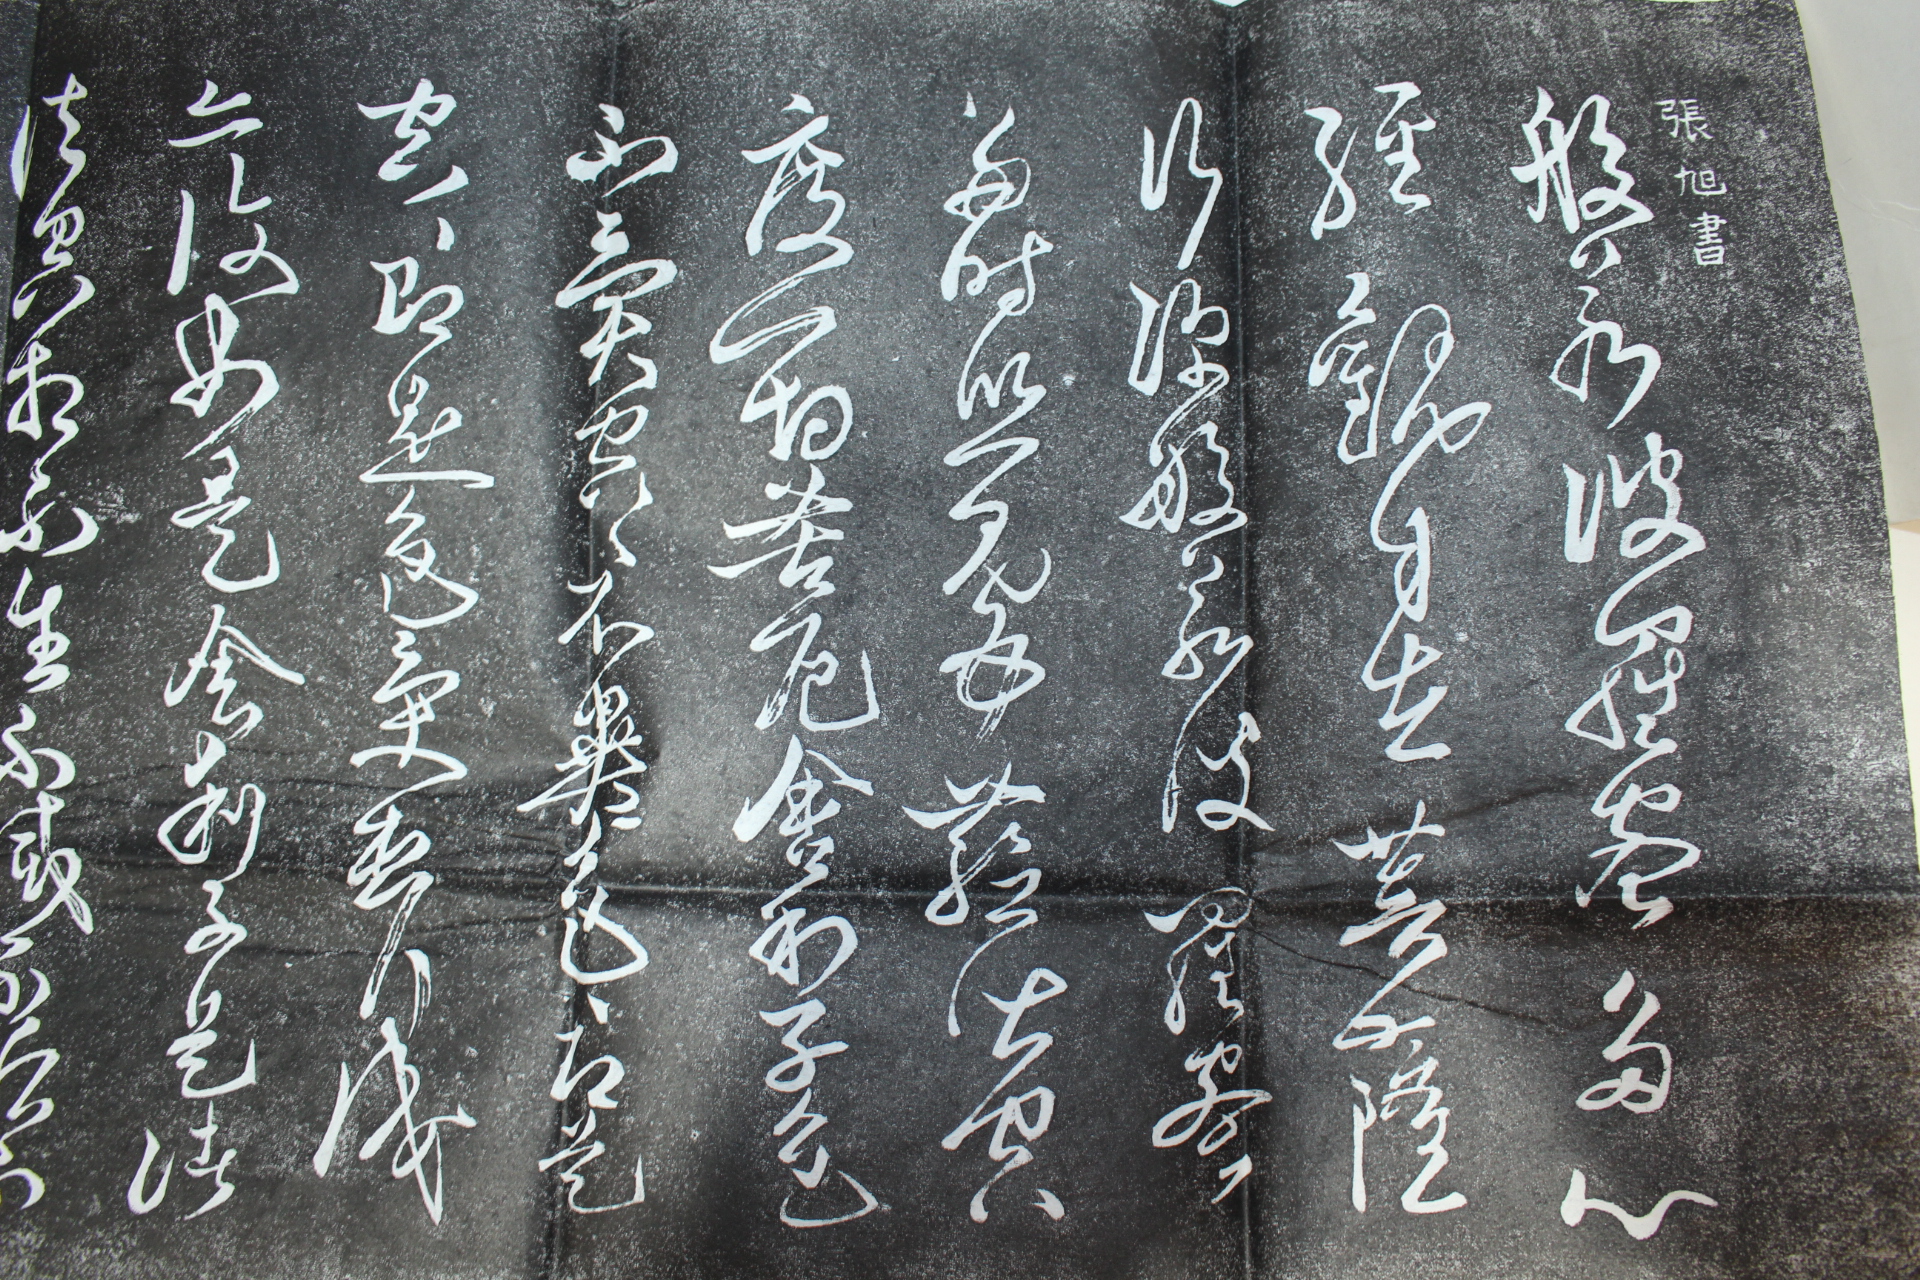 張旭書
般若波羅蜜多心
經觀自在菩薩
行深般若波羅蜜
多時照見五蘊皆空
度一切苦厄舍利子色
不異空空不異色色即是
空空即是色受想行識
亦復如是舍利子是諸
法空相不生不滅不垢不